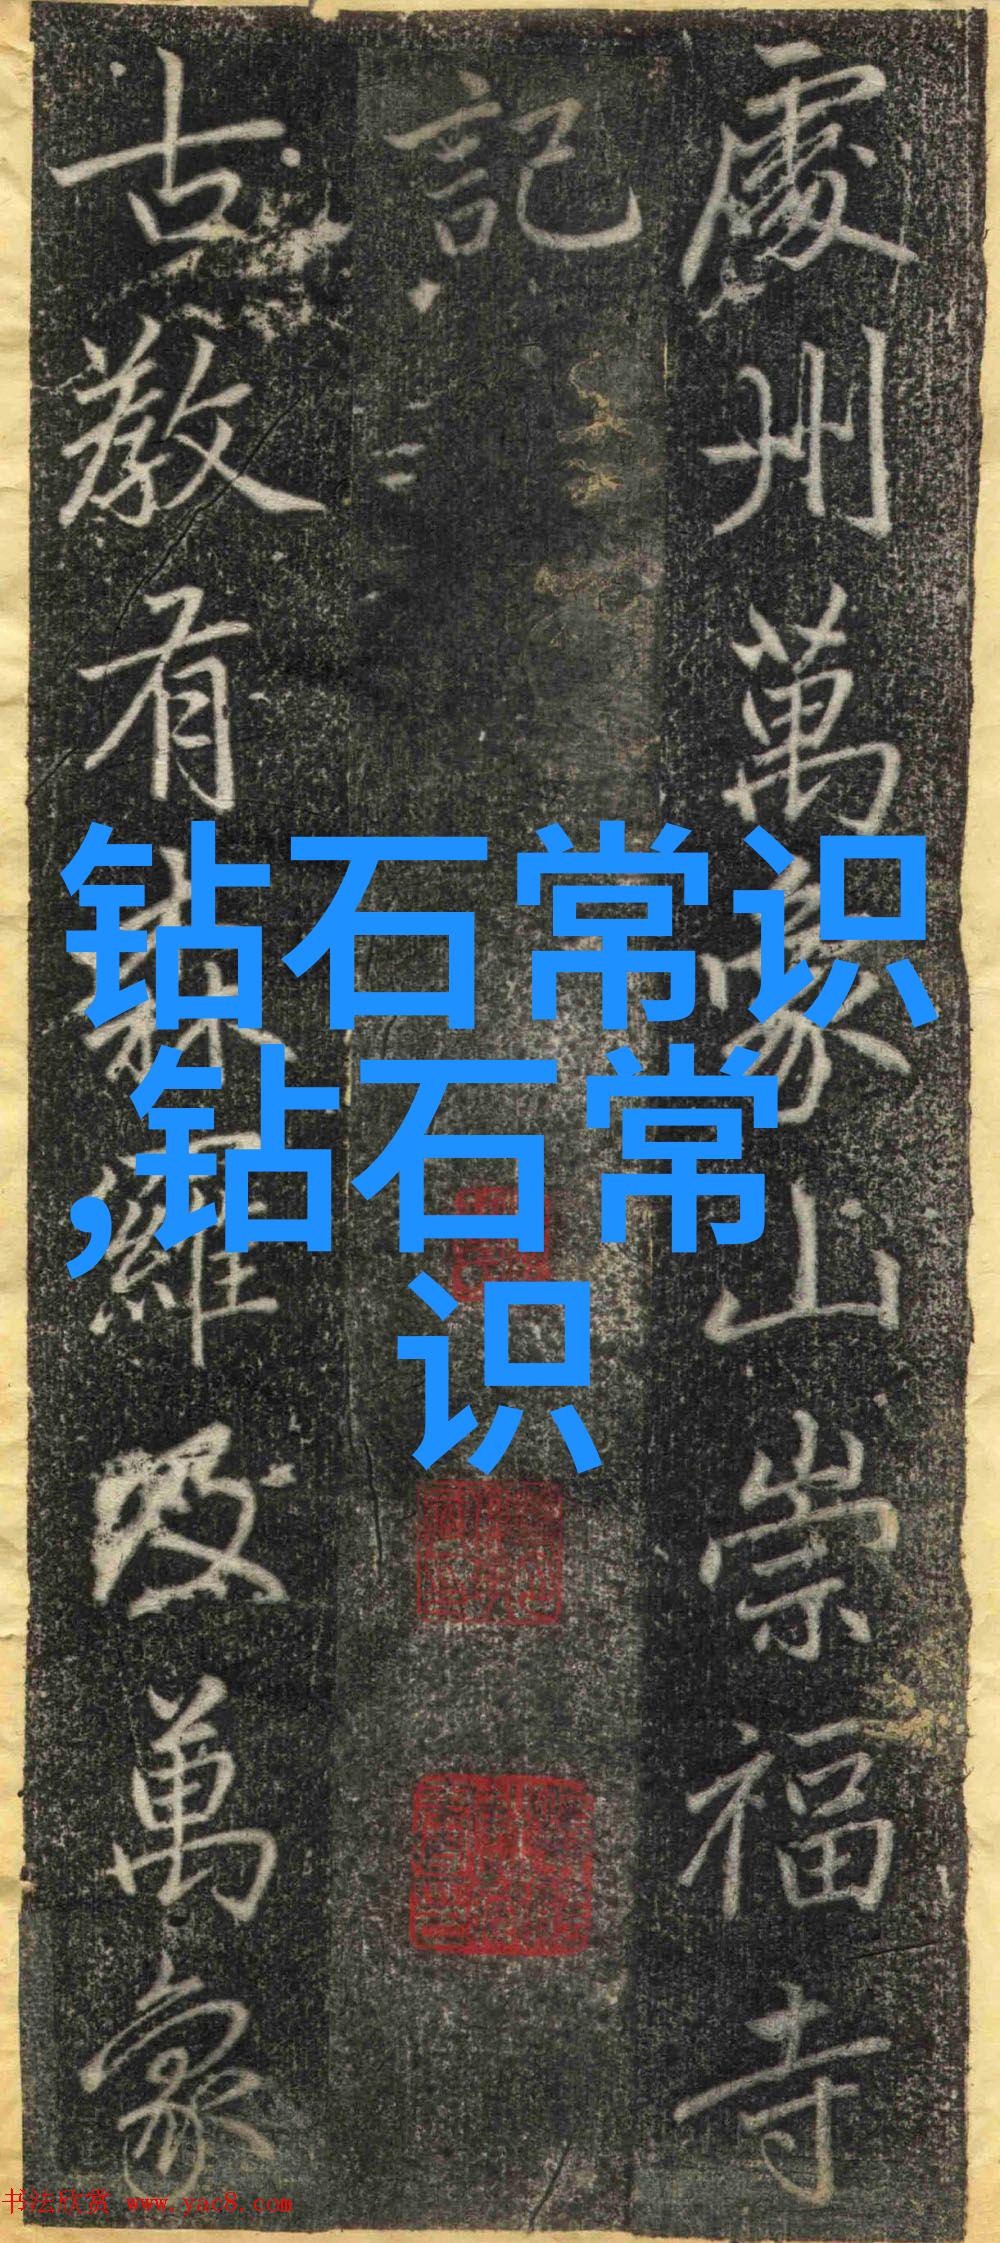 處州萬象山崇福寺
記
古教有森羅及萬象
钻石常识
,钻石常
识
书法欣赏 www.yac8.com